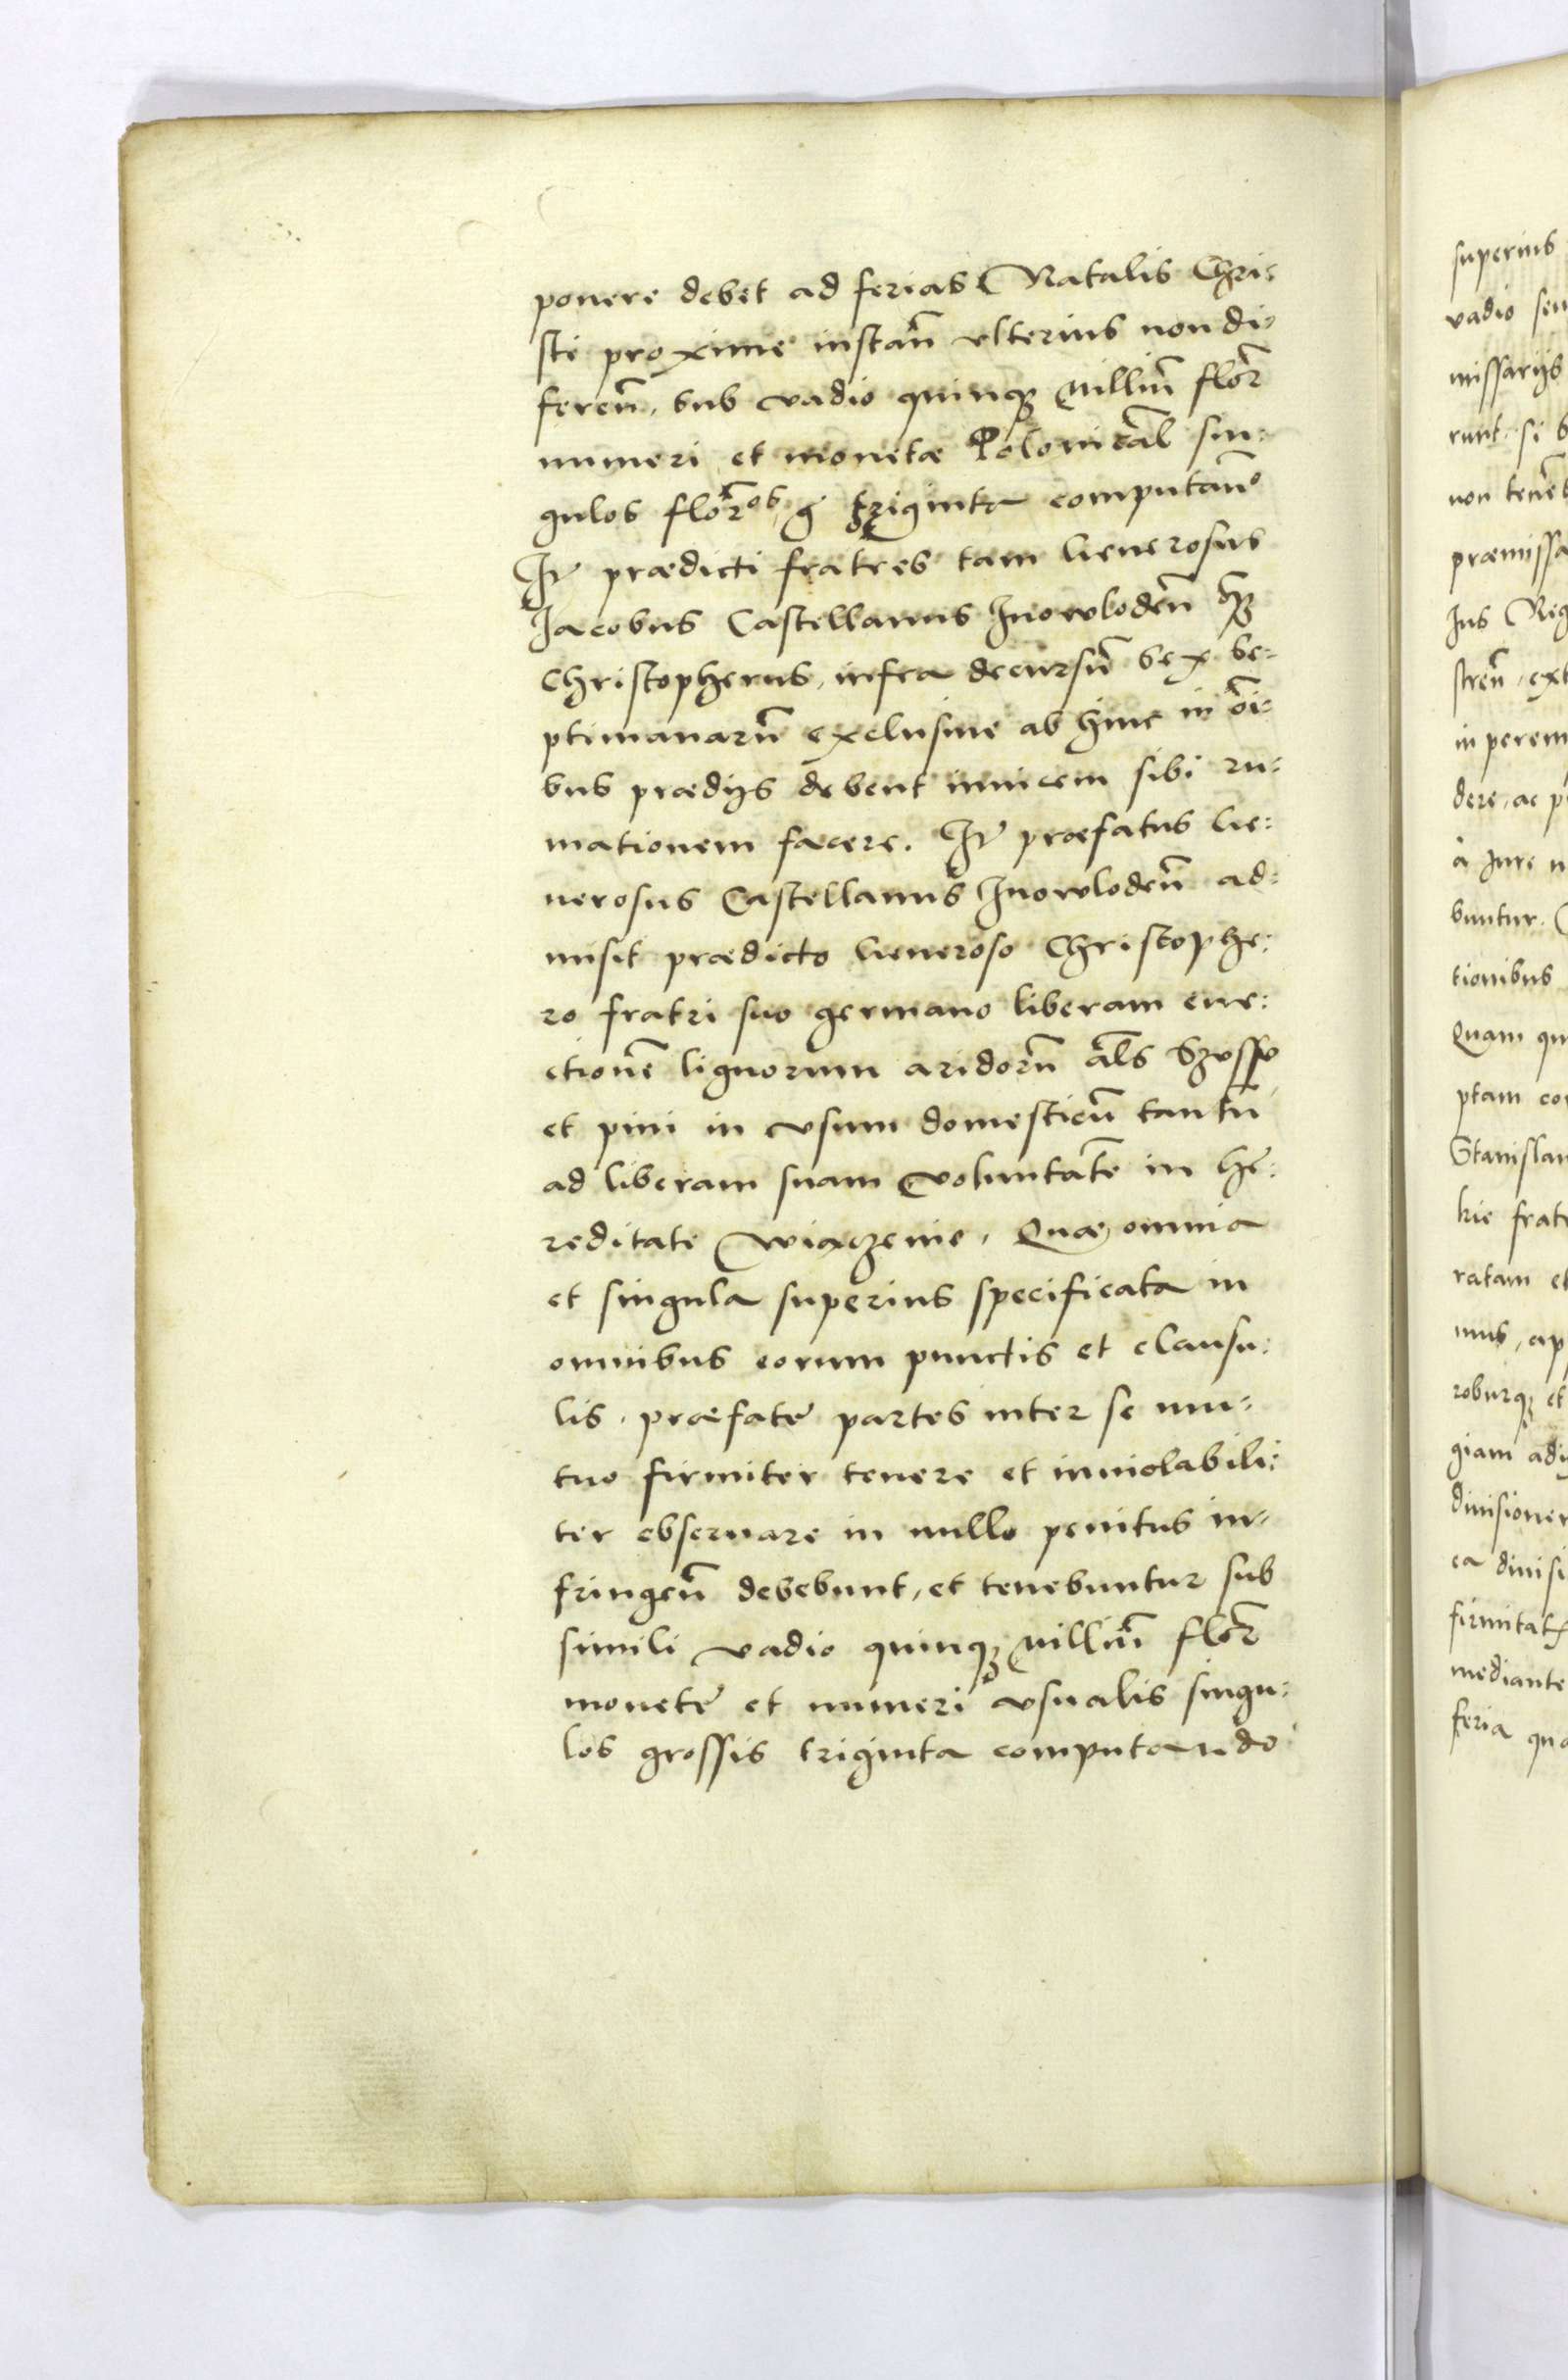 ponere debet ad ferias Natalis Chri=
sti proxime instan̄ vlterius non di=
feren̄, sub vadio quinqꝫ Milliū flor̄
numeri et monetæ Polonical̄ sin=
gulos flor̄os g̃ triginta computan̄o
It̃ prædicti fratres tam Generosus
Jacobus Castellanus Inowloden̄ q̃qꝫ
Christopherus, infra decursū sex se=
ptimanarū exclusiue ab hinc in oī=
bus prædijs debent inuicem sibi ru=
mationem facere. It̃ præfatus Ge=
nerosus Castellanus Inowloden̄ ad=
misit prædicto Generoso Christophe=
ro fratri suo germano liberam eue=
ctionē lignorum aridorū al̄s
et pini in vsum domesticū tantū
ad liberam suam voluntatē in he=
reditate Wiaczenie, Quæ omnia
et singula superius specificata in
omnibus eorum punctis et clausu=
lis, præfate partes inter se mu=
tuo firmiter tenere et inuiolabili=
ter obseruare in nullo penitus in=
fringen̄ debebunt, et tenebuntur sub
simili vadio quinqꝫ Milliū flor̄
monete et numeri vsualis singu=
los grossis triginta computando
superius
vadio seu
missarijs
runt, si
non
præmissa
Ius Reg
stren̄, ext
in perem
dere, ac
à Iure n
buntur.
tionibus
Quam qu
ptam con
Stanislau
fratr
ratam et
mus, ap
roburqꝫ et
giam adi
diuisionem
ea diuisi
firmitat
mediante
feria qua